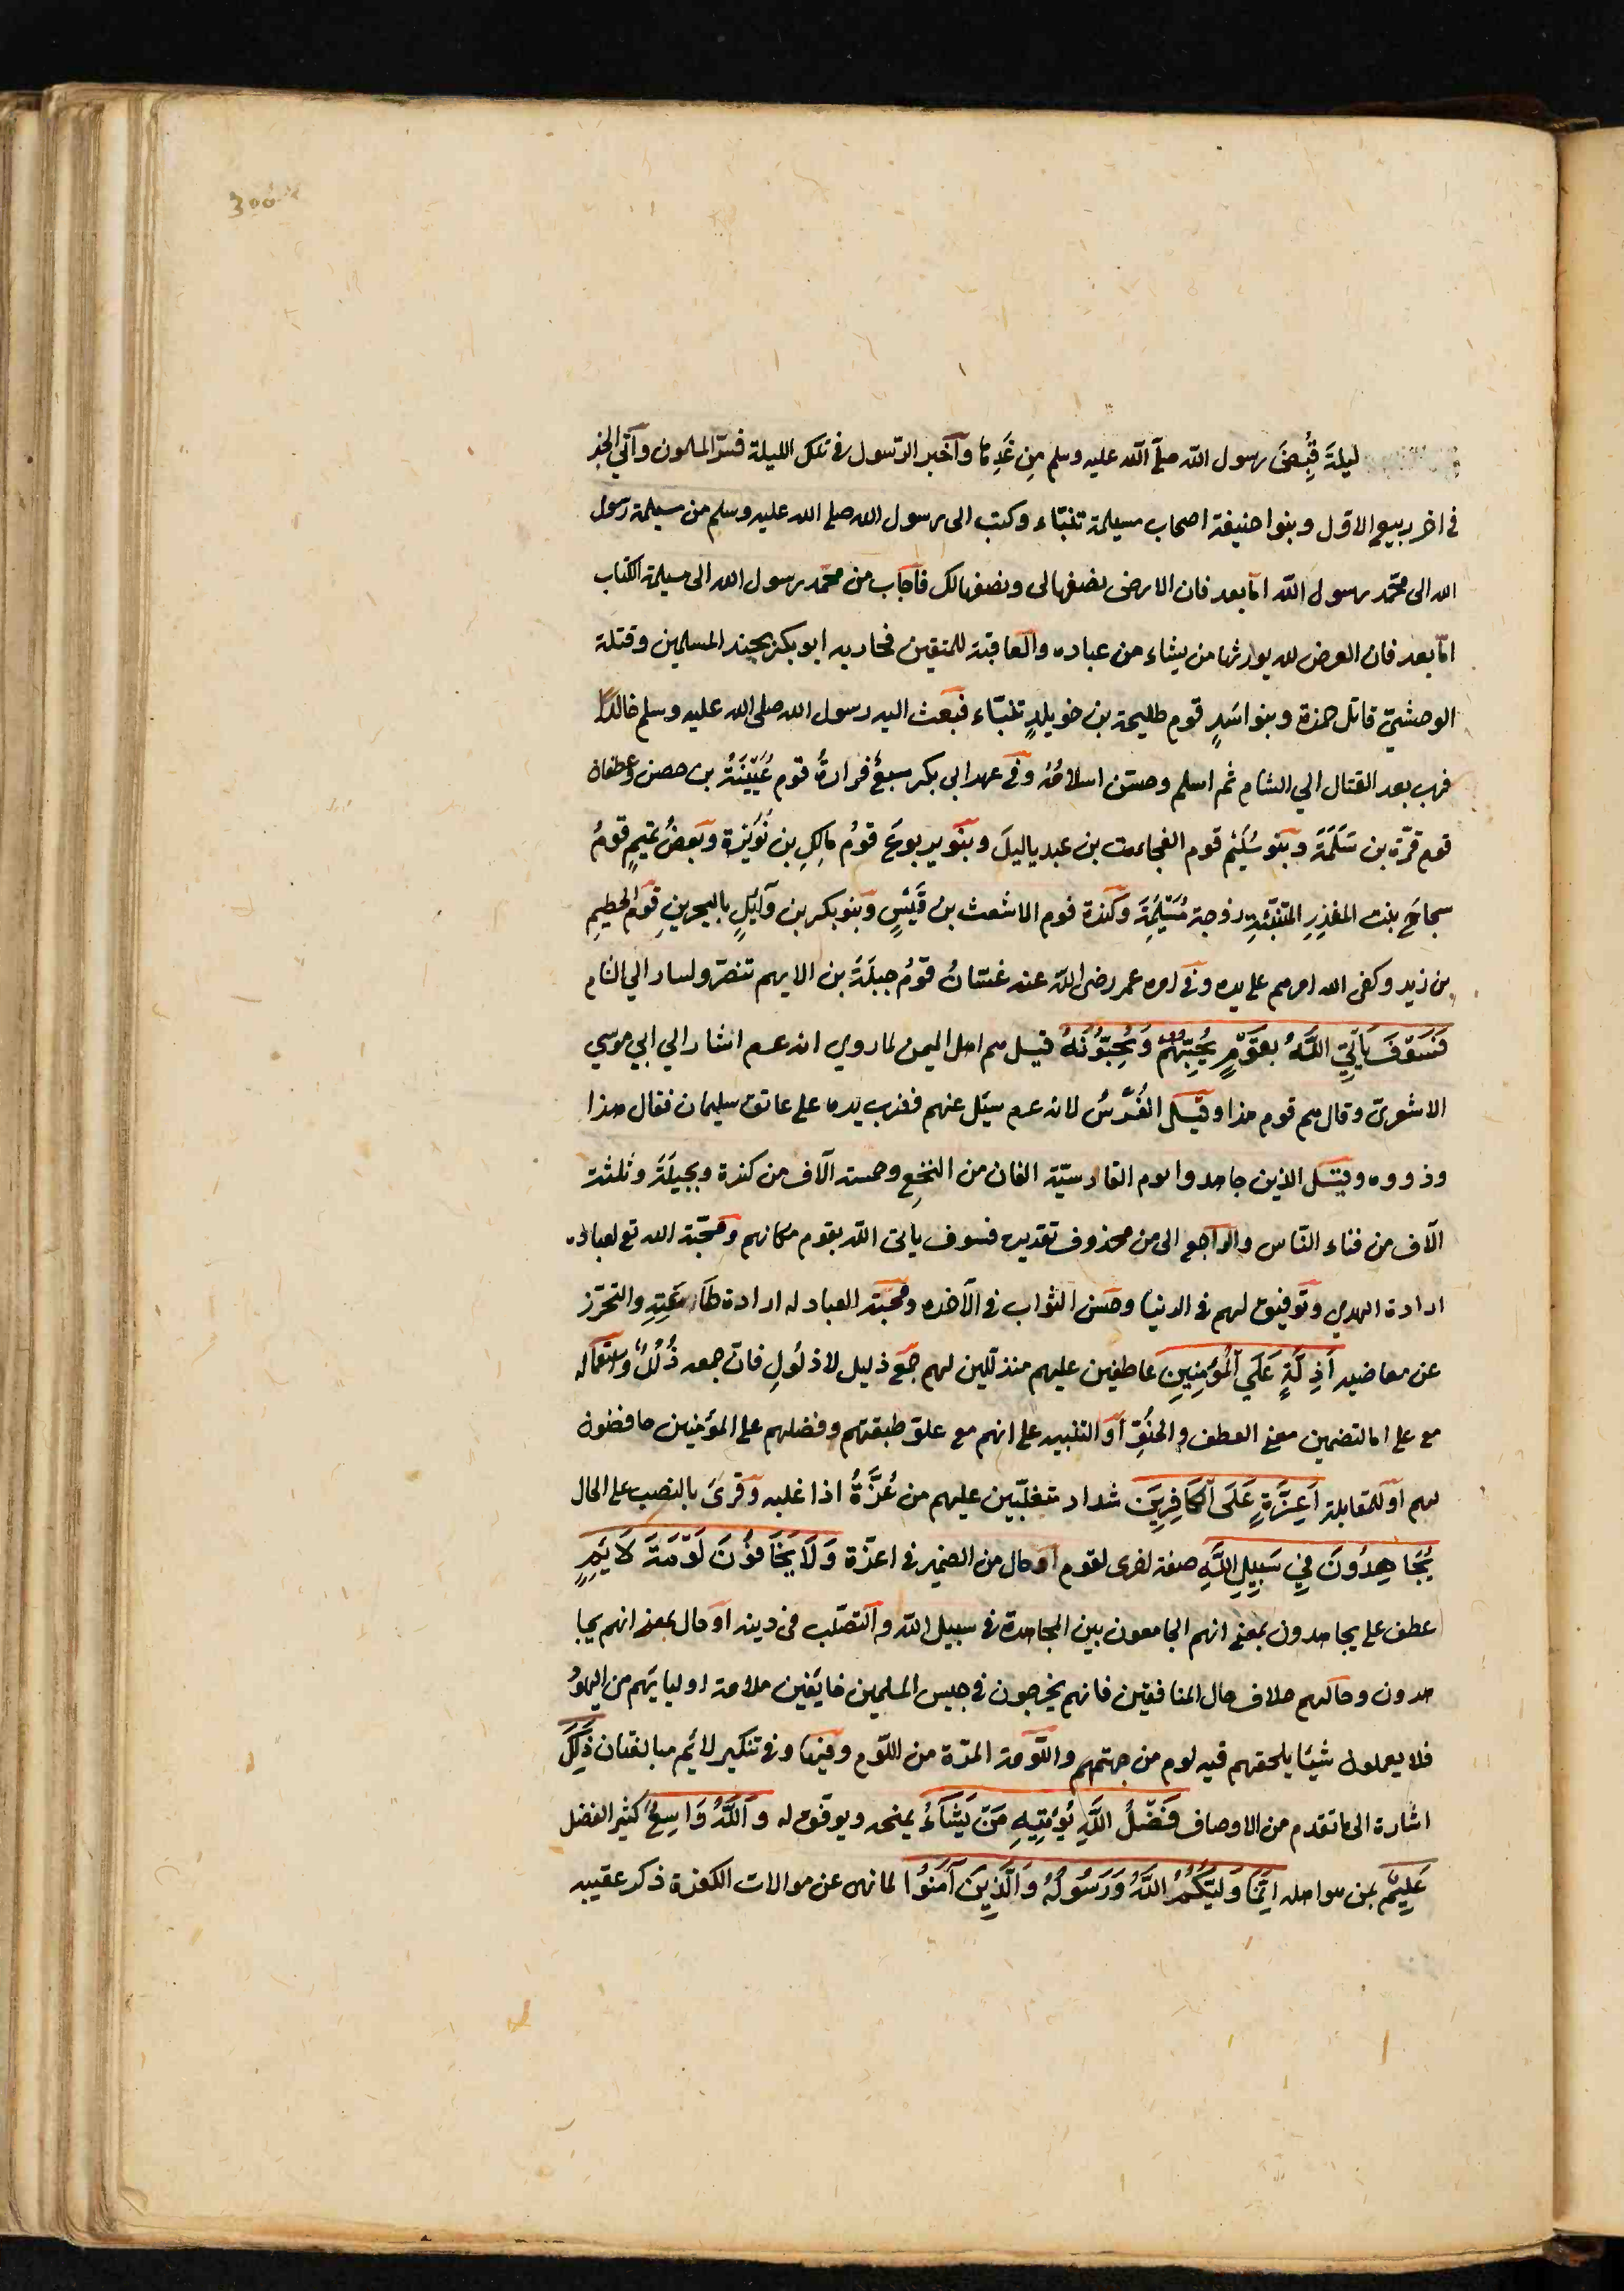 300
ليلةَ قُبِضَ رسول اللّه صلّى اللّه عليه وسلم مِن غَدِها وأخبر الرّسول في تلك الليلة فسرّ المسلمون وأتى الخبر
في اخر ربيع الاوّل وبنوا حنيفة اصحاب مسيلمة تنبّاء وكتب الى رسول الله صلى الله عليه وسلم من مسيلمة رسول
الله الى محمّد رسول اللّه امّا بعد فان الارض نصفها لى ونصفها لك فأجاب من محمّد رسول الله الى مسيلمة الكذاب
امّا بعد فان العرض لله يورثها من يشاء من عباده والعاقبة للمتقين فحاربه ابو بكر بجند المسلمين وقتلة
الوحشيّ قاتل حمزة وبنو اسَدٍ قوم طليحة بن خويلدٍ تنبّاء فبَعث اليه رسول الله صلى الله عليه وسلم خالدًا
فهرب بعد القتال الي الشام ثم اسلم وحسن اسلامُه وفي عهد ابي بكر سبعٌ فرارةُ قوم عُيَيْنَةُ بن حصن وغطفان
قوم قرّة بن سَلَمَة وبنو سُلَيْم قوم الفجاءت بن عبد ياليلَ وبَنو يربوعَ قومُ مالِكِ بن نُوَيْرة وبَعضُ تميمٍ قومُ
سجاحَ بنت المنذِرِ المتنبّئةِ زوجة مُسَيْلِمَةَ وكندة قوم الاشعث بن قَيْسٍ وبَنو بكر بن وآئِلٍ بالبحرينِ قوم الحطيم
بن زيد وكفى الله امرهم على يده وفي امره عمر رضى اللّه عنه غسّانُ قوْمُ جبلَةَ بن الايهم تنصّر ولسار الي الشام
فَسَوْفَ يَأْتِيِ اللَّهُ بِقَوْمٍ يُحِبُّهُمْ وَيُحِبُّونَهُ قيل هم اهل اليمن لما روى انه عم اشار الي ابي موسي
الاشعرىّ وقال هم قوم هذا وقيل الفُرْسُ لانه عم سئل عنهم فضرب يده على عاتق سليمان فقال هذا
وذووه وقيل الذين جاهدوا يوم القادسيّة الفان من النخعِ وخمسة آلاف من كندة وبجيلَةَ وثلثة
آلاف من فناء النّاس والرّاجع الى من محذوف تقديره فسوف يأتى اللّه بقوم مكانهم ومحبّة الله تع لعباده
ارادة الهدي وتَوفيق لهم في الدنيا وحسن الثواب في الآخره ومحبّة العباد له ارادة طاعَتِهِ والتحرّز
عن معاضيه أَذِلَّةٍ عَلَى الْمُؤْمِنِينِ عاطفين عليهم متذلّلين لهم جمع ذليل لا ذلولِ فانّ جمعه ذُلُلٌ واستعماله
مع على امّا لتضمين معنى العطف والحنُوِّ أو التنبيه على انهم مع علوّ طبقتهم وفضلهم على المؤمنين خافضون
لهم او للمقابلة أَعِزَّةٍ عَلَى الْكَافِرِينَ شداد متغلّبين عليهم من عُزَّةُ اذا غلبه وقرئَ بالنصب على الحال
يُجَاهِدُونَ فِي سَبِيلِ اللَّهِ صفة اخرى لقوم أو حال من الضمير في اعزّة وَلَا يَخَافُونَ لَوْمَةَ لَائِمٍ
عطف على يجاهدون بمعنى انهم الجامعون بين المجاهدة في سبيل اللّه والتصلّب فى دينه او حال بمعنى انهم يجا
هدون وحالهم خلاف حال المنافقين فانهم يخرجون في جيس المسلمين خايفين ملامة اوليائهم من اليهود
فلا يعملون شيئا يلحقهم فيه لوم من جهتهم واللّومة المرّة من اللوّم وفيها وفي تنكير لائم مبالغتان ذَلِكَ
اشارة الى ما تقدم من الاوصاف فَضْلُ اللَّهِ يُؤْتِيهِ مَنْ يَشَاءُ يمنحه ويوفّق له وَاللَّهُ وَاسِعٌ كثير الفضل
عَلِيمٌ بمن هو اهله اِنَّمَا وَلِيُّكُمُ اللَّهُ وَرَسُولُهُ وَالَّذِينَ آمَنُوا لما نهى عن موالات الكفرة ذكر عقيبه